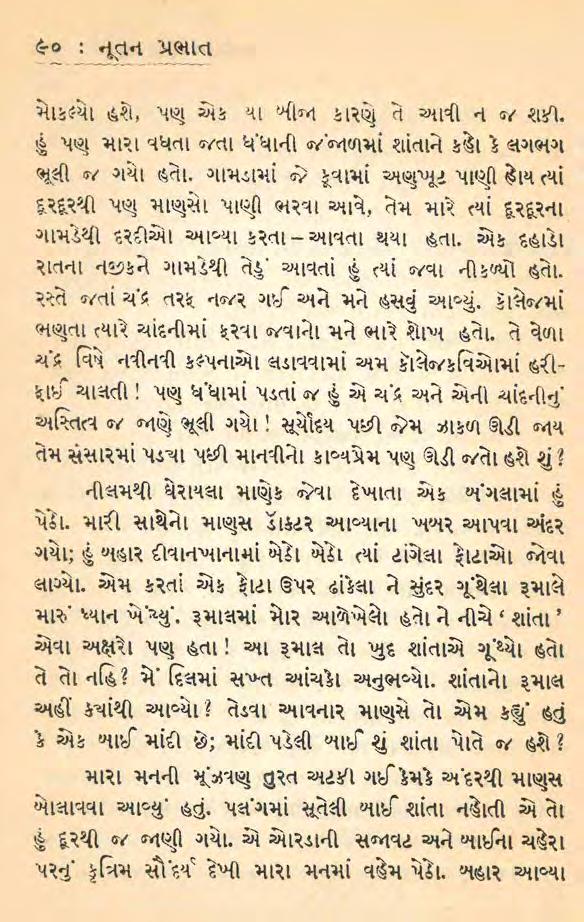 ૯૦ : નૂતન પ્રભાત
મોકલ્યો હશે, પણ એક યા બીજા કારણે તે આવી ન જ શકી.
હું પણ મારા વધતા જતા ધંધાની જંજાળમાં શાંતાને કહો કે લગભગ
ભૂલી જ ગયો હતો. ગામડામાં જે કૂવામાં અણખૂટ પાણી હોય ત્યાં
દૂરદૂરથી પણ માણસો પાણી ભરવા આવે, તેમ મારે ત્યાં દૂરદૂરના
ગામડેથી દરદીઓ આવ્યા કરતા – આવતા થયા હતા. એક દહાડો
રાતના નજીકને ગામડેથી તેડું આવતાં હું ત્યાં જવા નીકળ્યો હતો.
રસ્તે જતાં ચંદ્ર તરફ નજર ગઈ અને મને હસવું આવ્યું. કૉલેજમાં
ભણતા ત્યારે ચાંદનીમાં ફરવા જવાનો મને ભારે શોખ હતો. તે વેળા
ચંદ્ર વિષે નવીનવી કલ્પનાઓ લડાવવામાં અમ કૉલેજકવિઓમાં હરી-
ફાઈ ચાલતી! પણ ધંધામાં પડતાં જ હું એ ચંદ્ર અને એની ચાંદનીનું
અસ્તિત્વ જ જાણે ભૂલી ગયો! સૂર્યોદય પછી જેમ ઝાકળ ઊડી જાય
તેમ સંસારમાં પડ્યા પછી માનવીનો કાવ્યપ્રેમ પણ ઊડી જતો હશે શું?
નીલમથી ઘેરાયલા માણેક જેવા દેખાતા એક બંગલામાં હું
પેઠો. મારી સાથેનો માણસ ડૉક્ટર આવ્યાના ખબર આપવા અંદર
ગયો; હું બહાર દીવાનખાનામાં બેઠો બેઠો ત્યાં ટાંગેલા ફોટાઓ જોવા
લાગ્યો. એમ કરતાં એક ફોટા ઉપર ઢાંકેલા ને સુંદર ગૂંથેલા રૂમાલે
મારું ધ્યાન ખેંચ્યું. રૂમાલમાં મોર આળેખેલો હતો ને નીચે ‘શાંતા’
એવા અક્ષરો પણ હતા! આ રૂમાલ તો ખુદ શાંતાએ ગૂંથ્યો હતો
તે તો નહિ? મેં દિલમાં સખ્ત આંચકો અનુભવ્યો. શાંતાનો રૂમાલ
અહીં ક્યાંથી આવ્યો? તેડવા આવનાર માણસે તો એમ કહ્યું હતું
કે એક બાઈ માંદી છે; માંદી પડેલી બાઈ શું શાંતા પોતે જ હશે?
મારા મનની મૂંઝવણ તુરત અટકી ગઈ કેમકે અંદરથી માણસ
બોલાવવા આવ્યું હતું. પલંગમાં સૂતેલી બાઈ શાંતા નહોતી એ તો
હું દૂરથી જ જાણી ગયો. એ ઓરડાની સજાવટ અને બાઈના ચહેરા
પરનું કૃત્રિમ સૌંદર્ય દેખી મારા મનમાં વહેમ પેઠો. બહાર આવ્યા